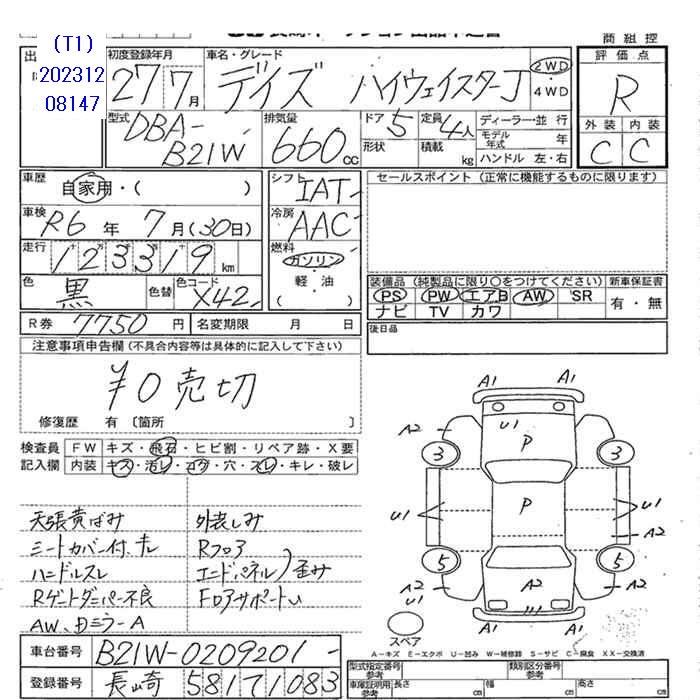 (T1)
202312
08147
商組控
初度登録年月
27 7月
車名・グレード
デイズ ハイウェイスターJ
2WD
・
4WD
評価点
R
外装 内装
C C
型式
DBA-
B21W
排気量
660cc
ドア 5
形状
定員 4人
積載 kg
ディーラー・並行
モデル年式 年
ハンドル 左・右
車歴
自家用・( )
シフト
IAT
セールスポイント (正常に機能するものに限ります)
車検
R6年 7月(30日)
冷房
AAC
走行
123319km
燃料
ガソリン
・
軽・油
( )
色
黒
色替
色コード
X42
装備品 (純製品に限り○をつけてください)
新車保証書
PS PW エアB AW SR
ナビ TV カワ
有・無
R券 7750円
名変期限 月 日
後日品
注意事項申告欄 (不具合内容等は具体的に記入して下さい)
¥0売切
修復歴 有 〔箇所 〕
検査員
記入欄
FW キズ・飛石・ヒビ割・リペア跡・X要
内装 キズ・汚レ・コゲ・穴・スレ・キレ・破レ
天張黄ばみ
シートカバー付、キレ
ハンドルスレ
Rゲートダンパー不良
AW、Dミラー A
外装しみ
Rフロア
エンドパネル)歪み
Fロアサポート U
A1 A1
A2 A2
U1 P
3 3
P
U1 U1
A2
5 5
A2 A2 A2
U1
A1 A1
スペア
A－キズ E－エクボ U－凹み W－補修跡 S－サビ C－腐食 XX－交換済
車台番号
B21W-0209201
登録番号
長崎 581 71083
型式指定番号
参考
類別区分番号
参考
車庫証明用
参考
長さ 幅 高さ cm